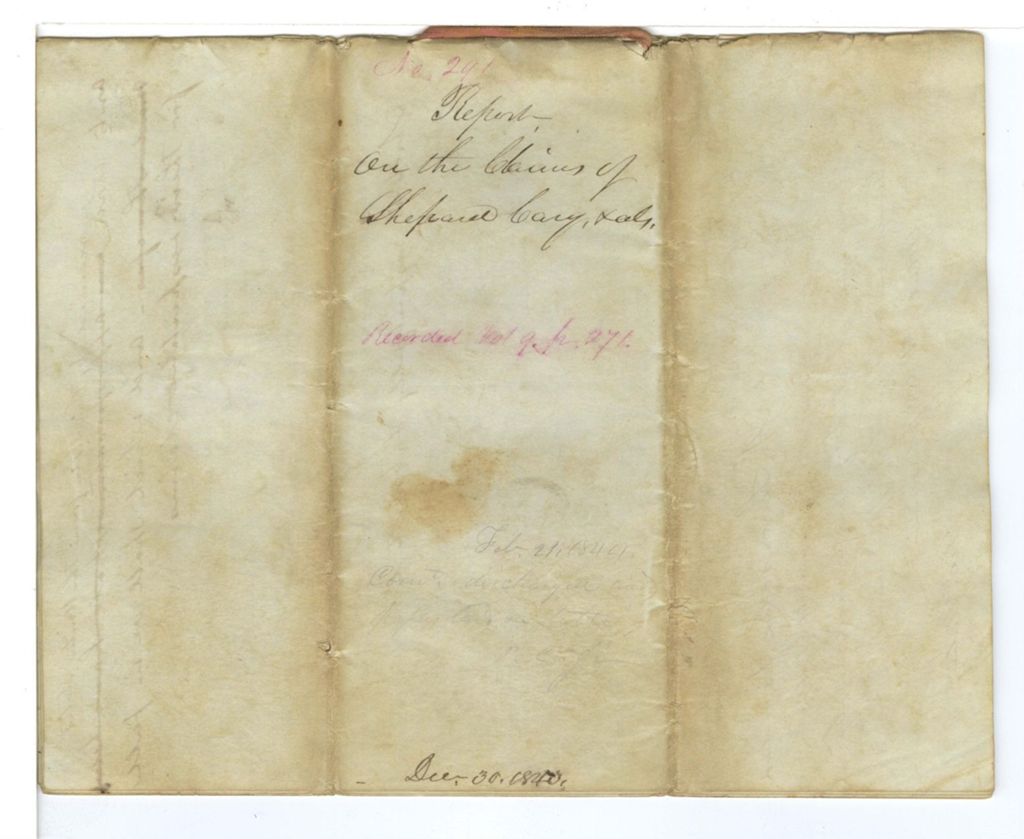 No. 291
Report
on the Claims of
Shepard Cary, & als.
Recorded Vol 9. p. 271.
Feb. 21, 1840.
Comte. discharged and
Dec. 30. 1840.